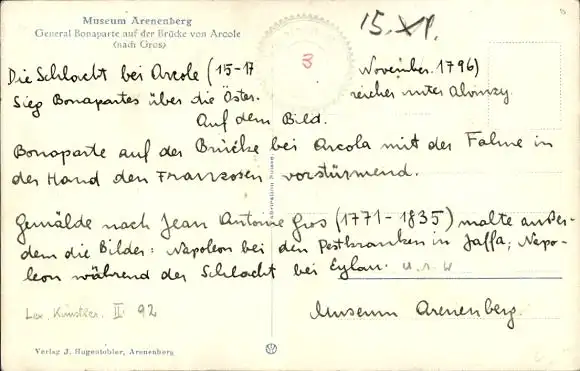 Museum Arenenberg
General Bonaparte auf der Brücke von Arcole
(nach Gros)
15. XI.
3
Die Schlacht bei Arcole (15-17 November. 1796)
Sieg Bonapartes über die Öster. reicher unter Alvinzy.
Auf dem Bild.
Bonaparte auf der Brücke bei Arcola mit der Fahne in
der Hand den Franzosen vorstürmend.
Gemälde nach Jean Antoine Gros (1771-1835) malte außer-
dem die Bilder: Napoleon bei den Pestkranken in Jaffa; Napo-
leon während der Schlacht bei Eylau. u. s. w
Lex. Künstler. II 92
Museum Arenenberg.
Verlag J. Hugentobler, Arenenberg